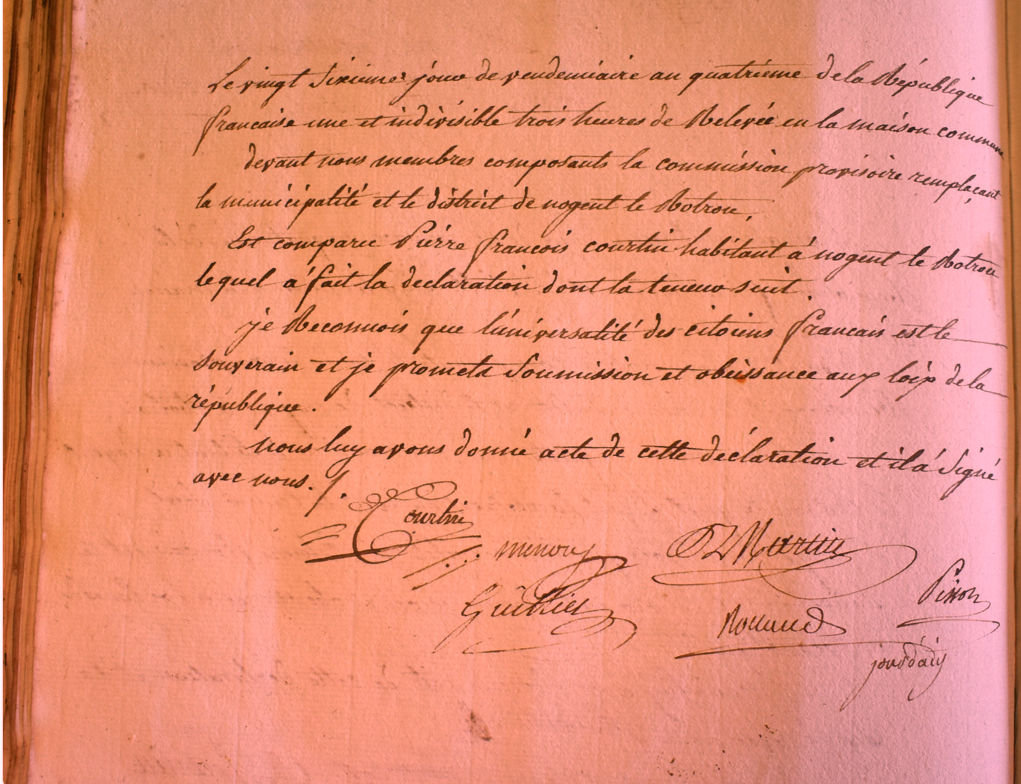 Le vingt sixieme jour de vendemiaire an quatrieme de la République
francaise une et indivisible trois heures de Relevée en la maison commune
devant nous membres composants la commission provisoire remplaçant
la municipalité et le district de nogent le Rotrou.
Est comparu Piérre francois courtin habitant à nogent le Rotrou
lequel à fait la declaration dont la teneur suit.
je Reconnois que l'universalité des citoiens francais est le
souverain et je promets soumission et obeissance aux loix de la
république.
nous luy avons donné acte de cette déclaration et il à signé
avec nous.
Courtin
Martin
Guithier
Rolland
jourdain